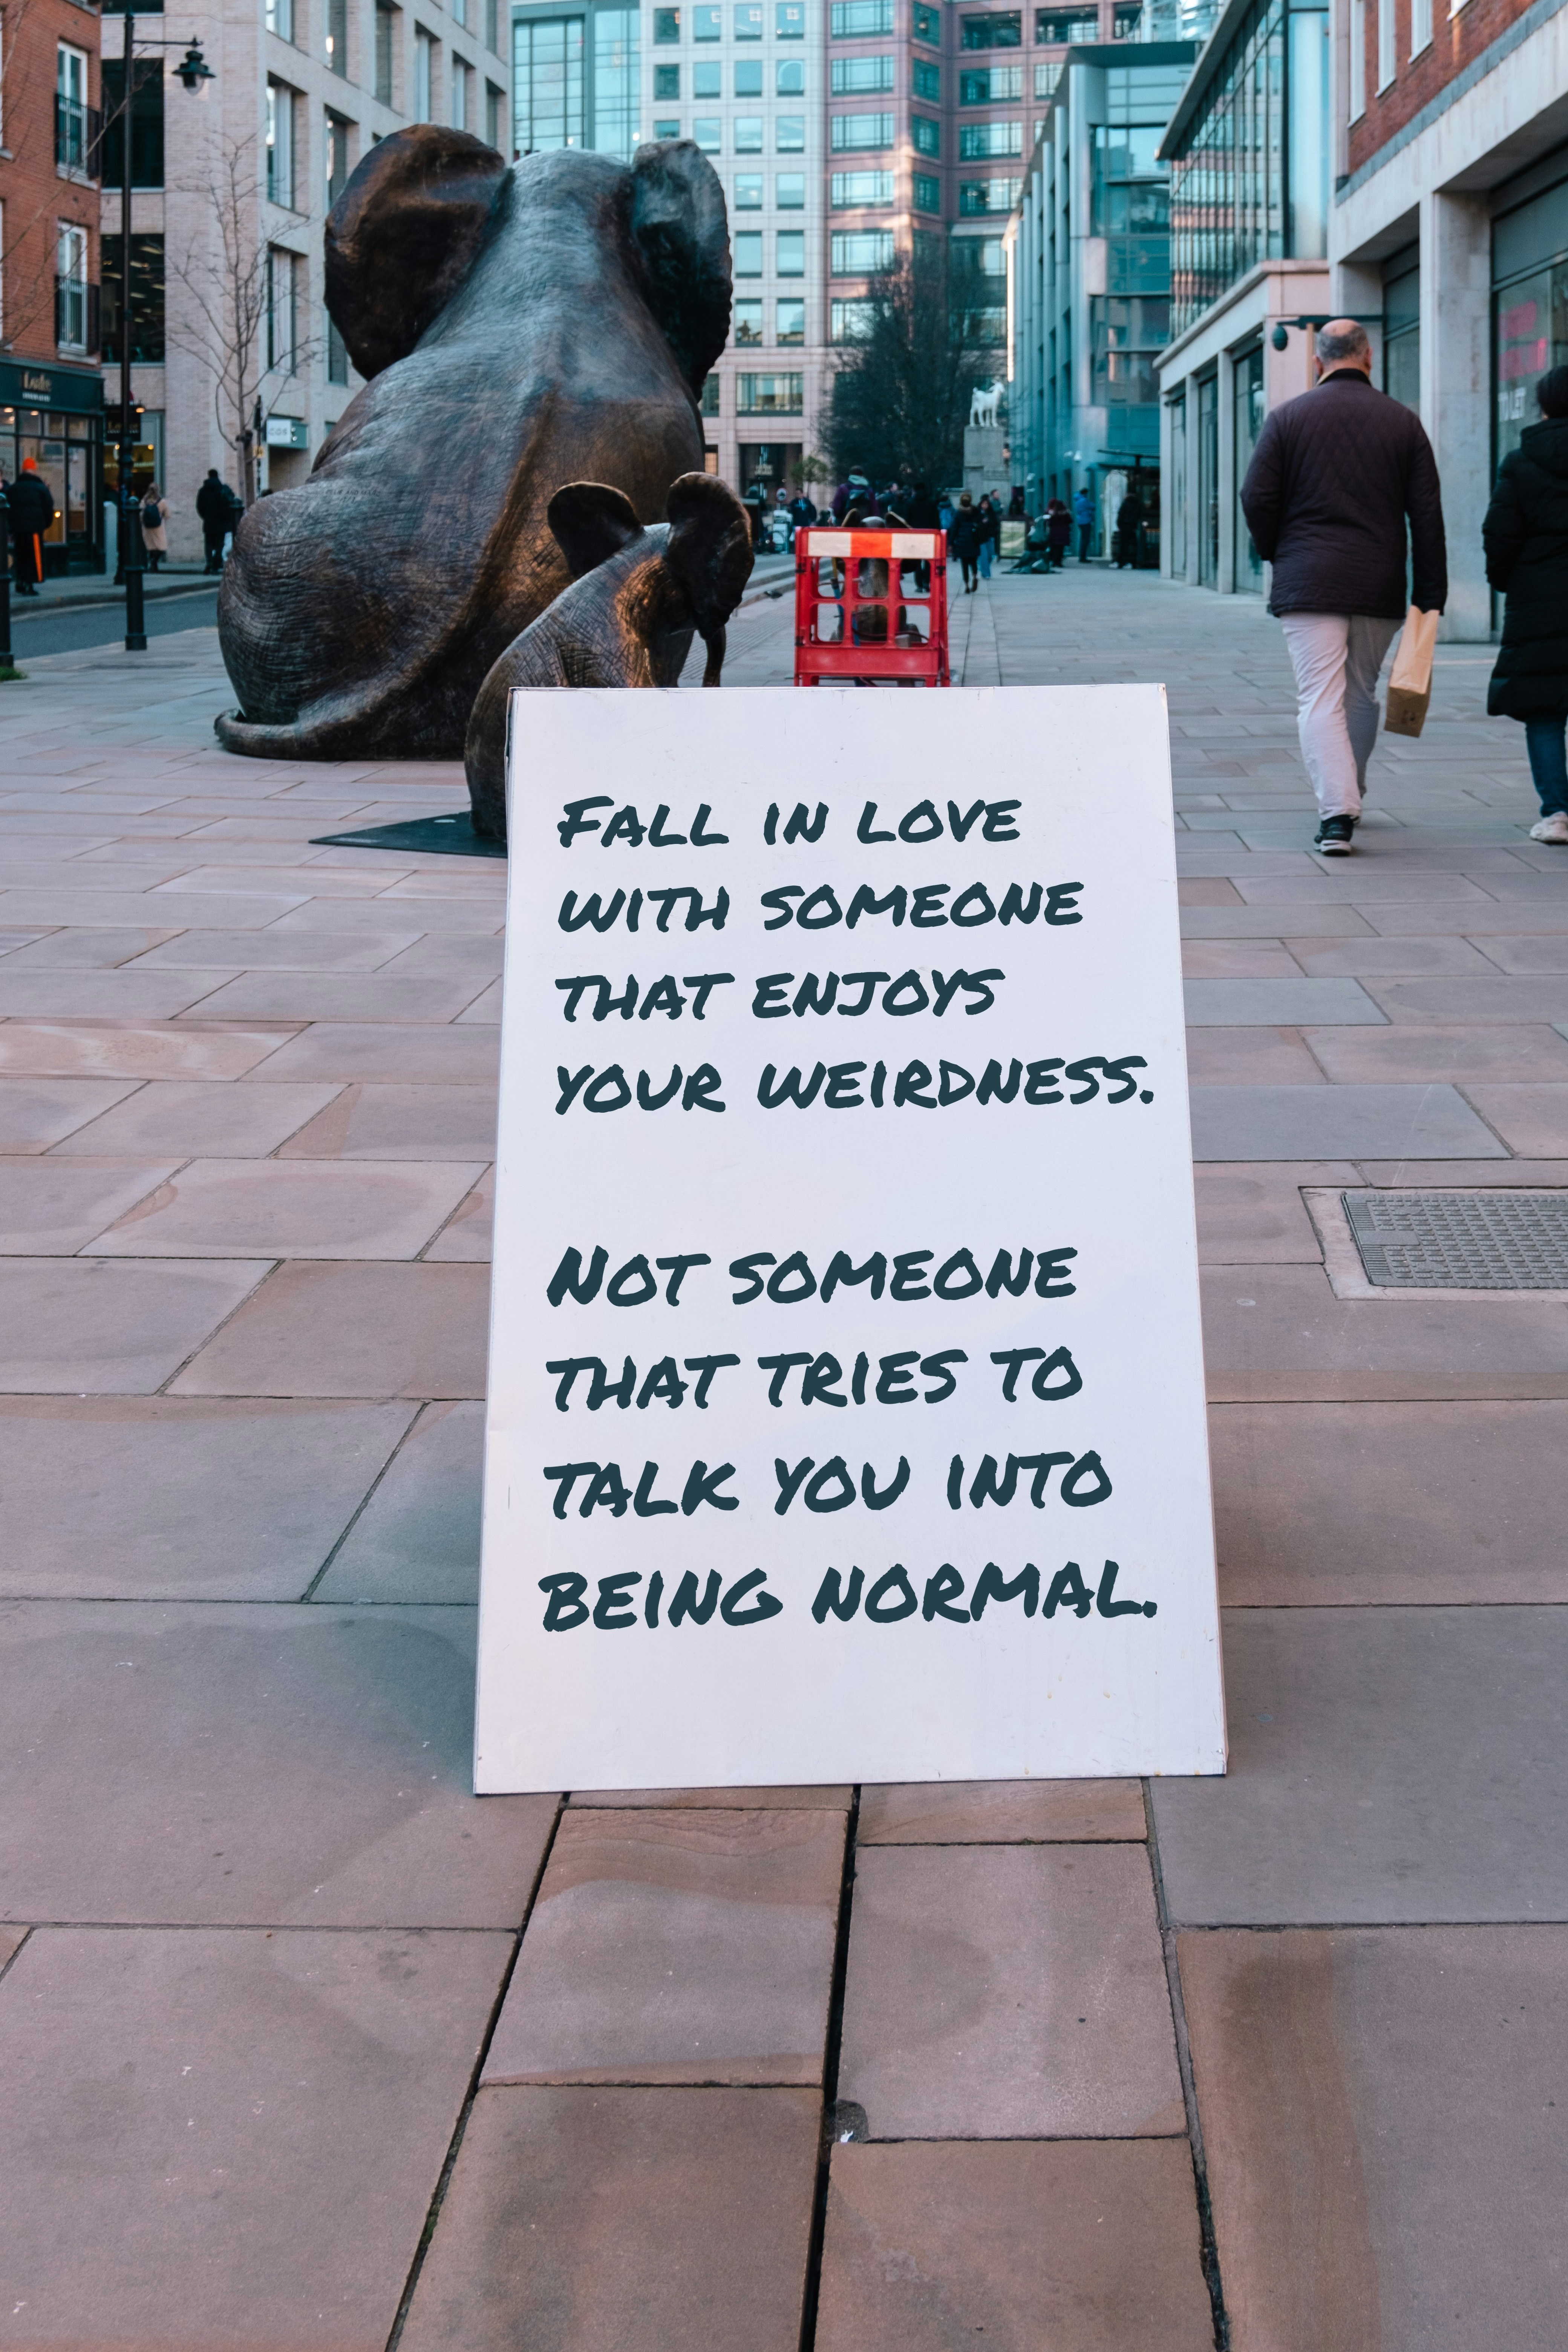 Fall in love
with someone
that enjoys
your weirdness.
Not someone
that tries to
talk you into
being normal.
COS